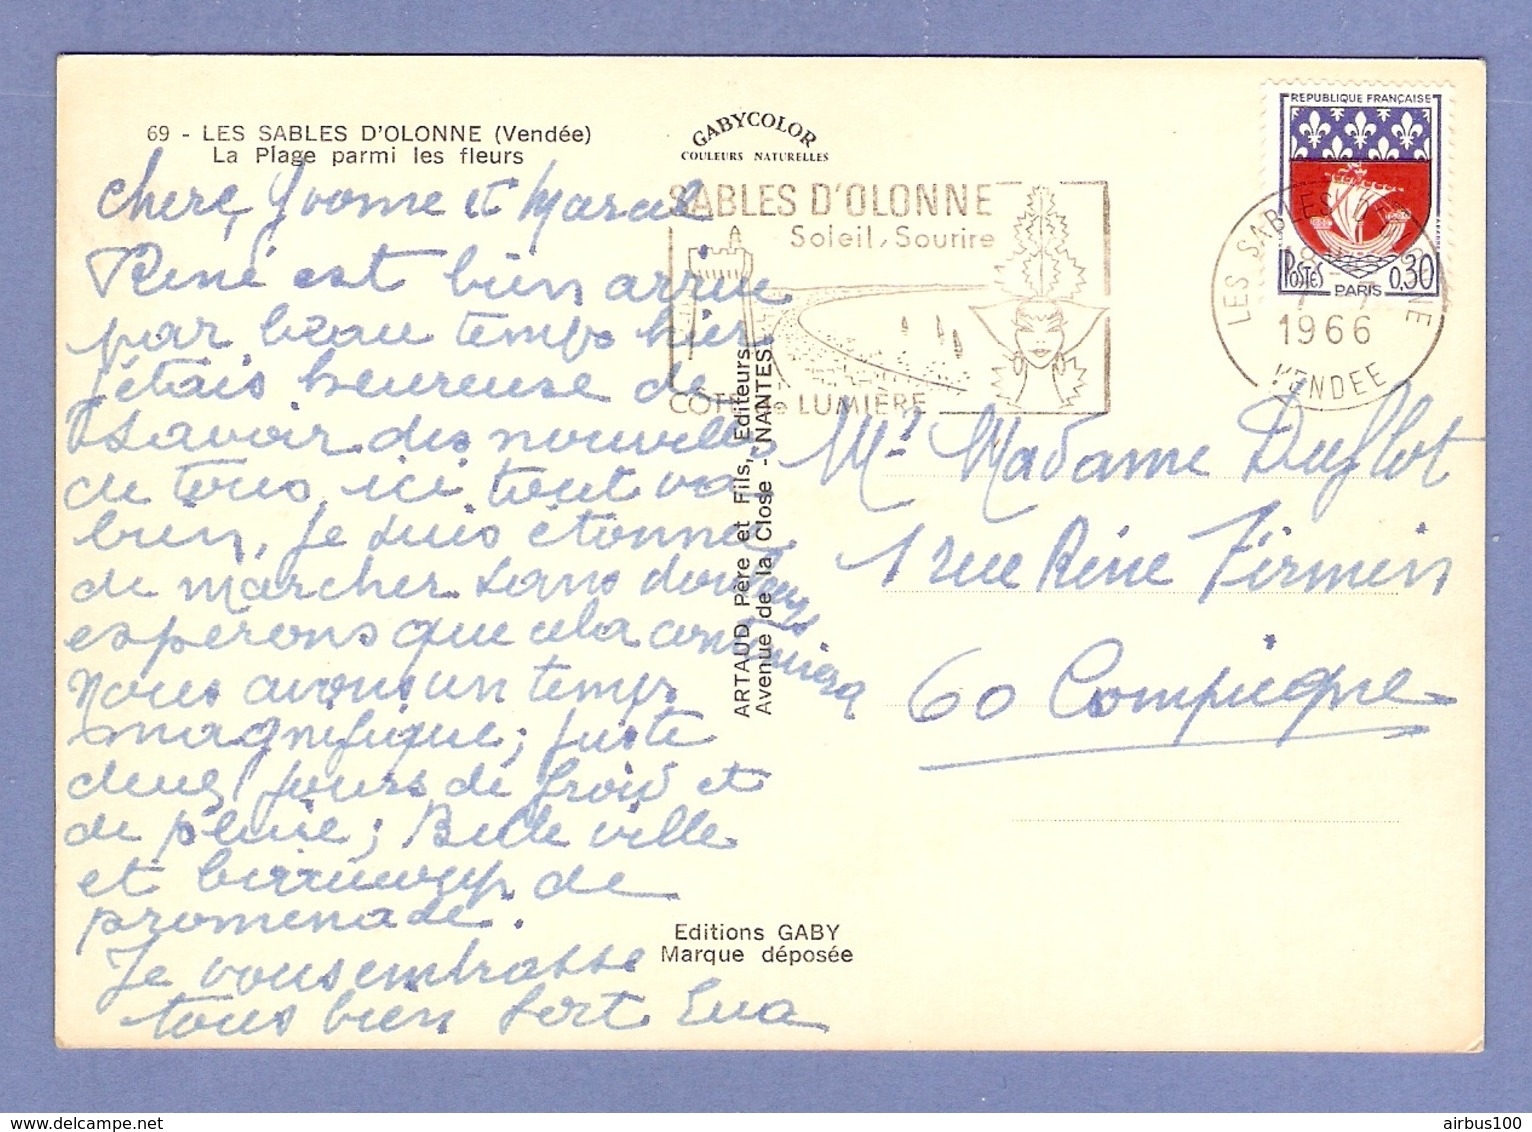 69 - LES SABLES D'OLONNE (Vendée)
La Plage parmi les fleurs
GABYCOLOR
COULEURS NATURELLES
SABLES D'OLONNE
Soleil, Sourire
CÔTE de LUMIÈRE
REPUBLIQUE FRANÇAISE
POSTES
PARIS
0,30
LES SABLES D'OLONNE
1966
VENDEE
chere Yvonne et Marcel
René est bien arrivé
par beau temps hier
j'étais heureuse de
savoir des nouvelles
de tous, ici tout va
bien, je suis étonné
de marcher sans douleurs
esperons que cela continuera
Nous avons un temps
magnifique, juste
deux jours de froid et
de pluie; Belle ville
et beaucoup de
promenade.
Je vous embrasse
tous bien fort Eva
ARTAUD Père et Fils, Editeurs
Avenue de la Close - NANTES
Mr Madame Duflot
1 rue Réné Firmin
60 Compiegne
Editions GABY
Marque déposée
airbus100